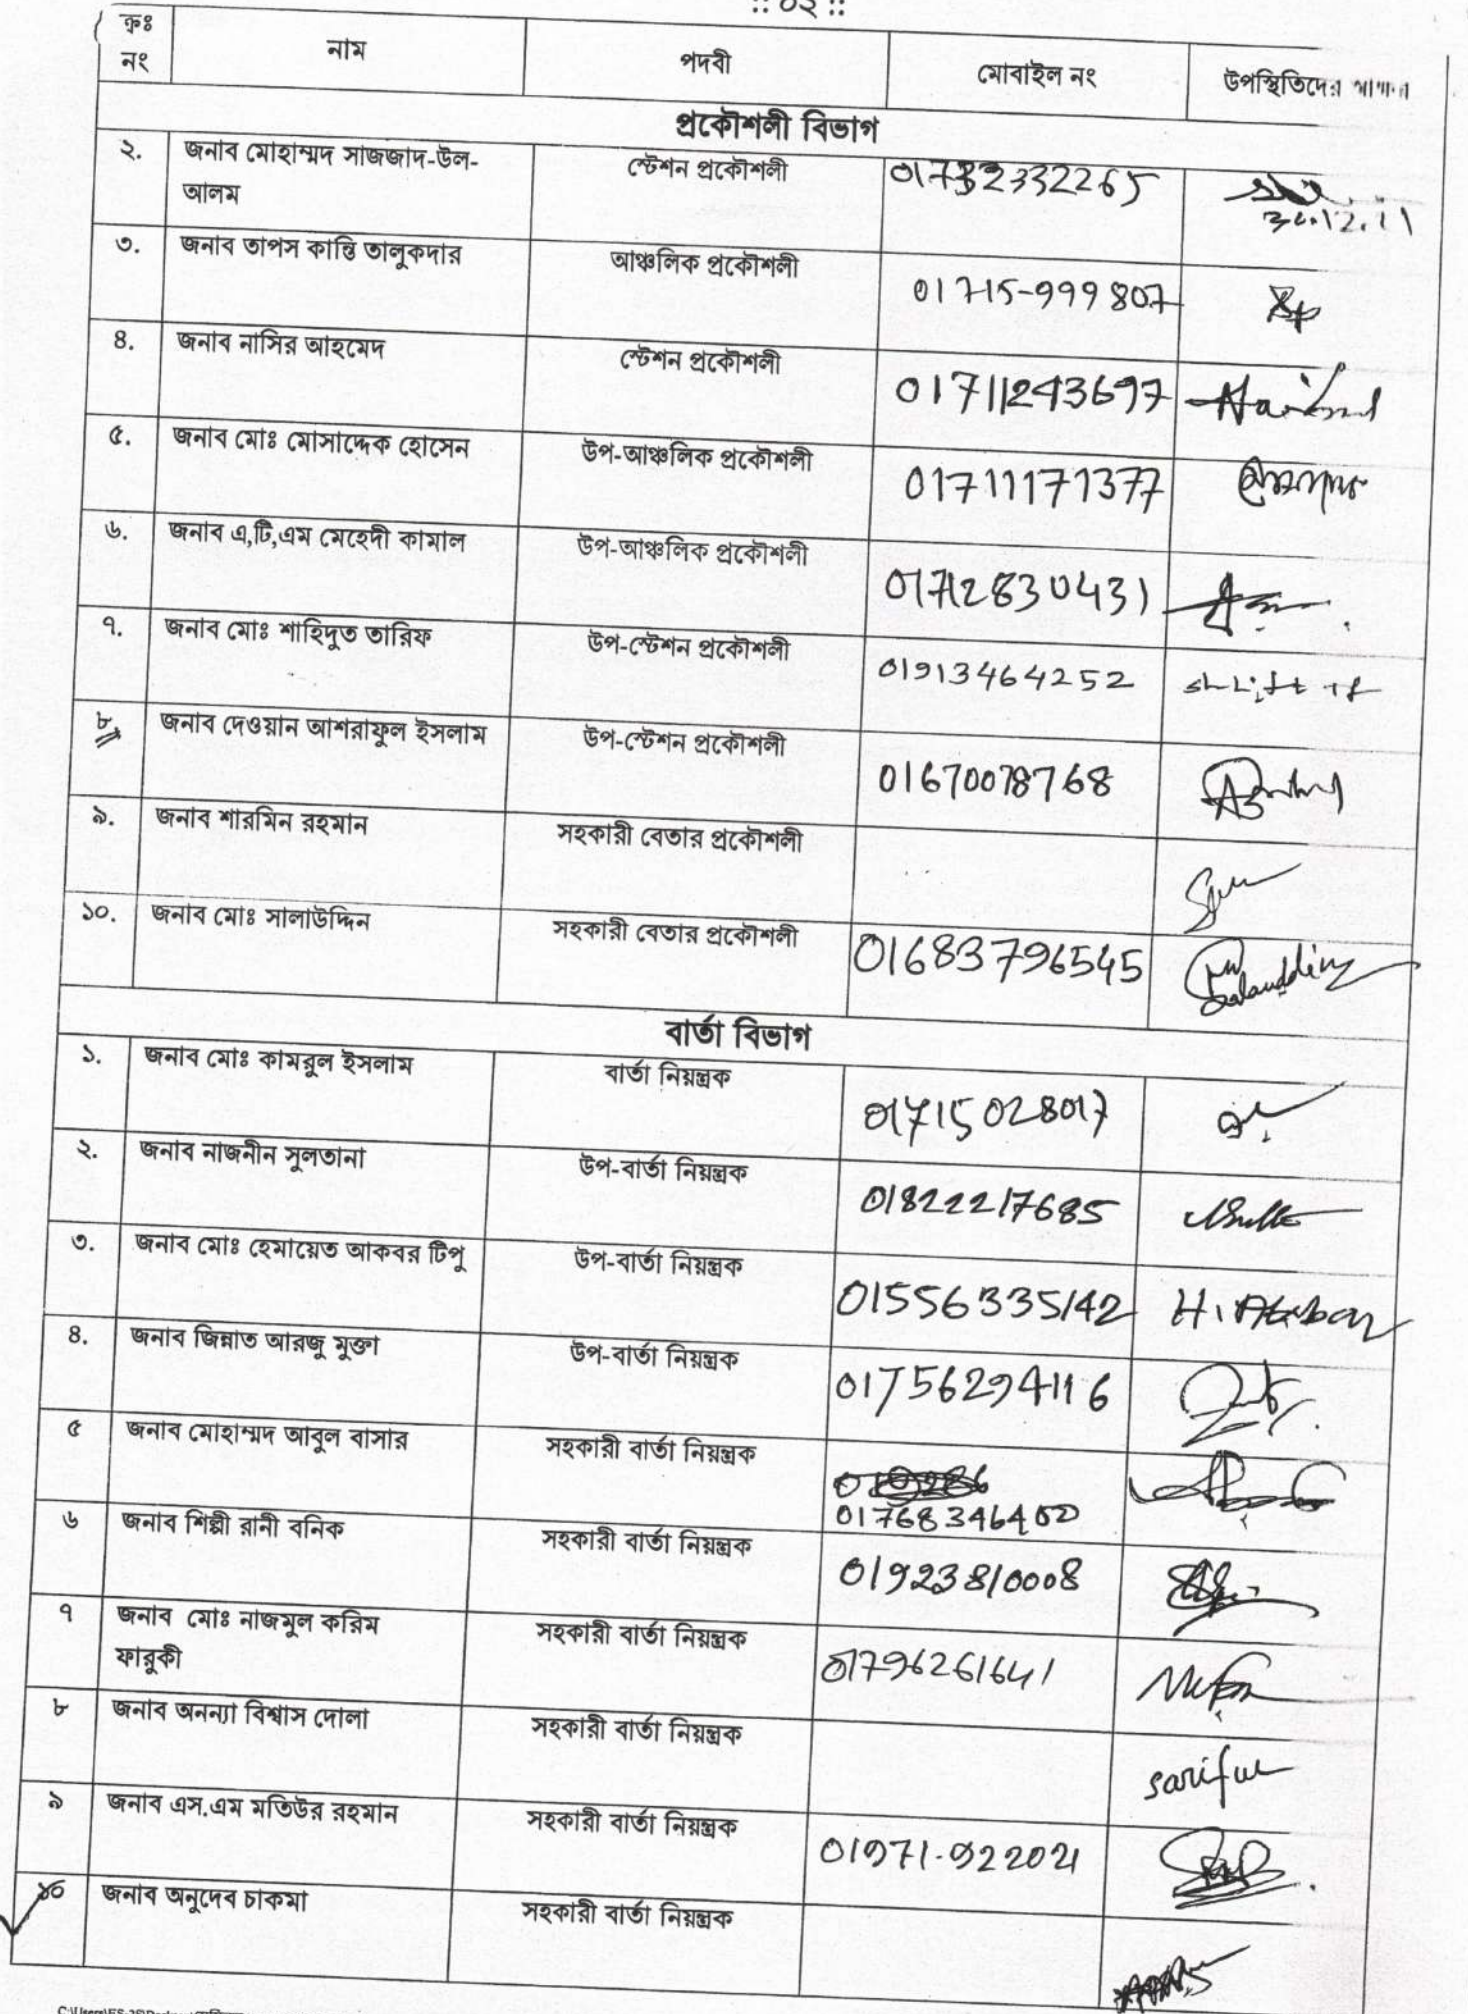 :: ০২ ::
ক্রঃ নং | নাম | পদবী | মোবাইল নং | উপস্থিতিদের
প্রকৌশলী বিভাগ
২. জনাব মোহাম্মদ সাজজাদ-উল- | স্টেশন প্রকৌশলী | 01732332265
আলম
30.12.11
৩. জনাব তাপস কান্তি তালুকদার | আঞ্চলিক প্রকৌশলী | 01715-999807
৪. জনাব নাসির আহমেদ | স্টেশন প্রকৌশলী | 01711243697
৫. জনাব মোঃ মোসাদ্দেক হোসেন | উপ-আঞ্চলিক প্রকৌশলী | 01711171377
৬. জনাব এ,টি,এম মেহেদী কামাল | উপ-আঞ্চলিক প্রকৌশলী | 01712830431
৭. জনাব মোঃ শাহিদুত তারিফ | উপ-স্টেশন প্রকৌশলী | 01913464252
৮. জনাব দেওয়ান আশরাফুল ইসলাম | উপ-স্টেশন প্রকৌশলী | 01670078768
৯. জনাব শারমিন রহমান | সহকারী বেতার প্রকৌশলী
১০. জনাব মোঃ সালাউদ্দিন | সহকারী বেতার প্রকৌশলী | 01683796545 | Salauddin
বার্তা বিভাগ
১. জনাব মোঃ কামরুল ইসলাম | বার্তা নিয়ন্ত্রক | 01715028017
২. জনাব নাজনীন সুলতানা | উপ-বার্তা নিয়ন্ত্রক | 01822217685
৩. জনাব মোঃ হেমায়েত আকবর টিপু | উপ-বার্তা নিয়ন্ত্রক | 01556335142 | H. Akbar
৪. জনাব জিন্নাত আরজু মুক্তা | উপ-বার্তা নিয়ন্ত্রক | 01756294116
৫ জনাব মোহাম্মদ আবুল বাসার | সহকারী বার্তা নিয়ন্ত্রক | 01768346402
৬ জনাব শিল্পী রানী বনিক | সহকারী বার্তা নিয়ন্ত্রক | 01923810008
৭ জনাব মোঃ নাজমুল করিম | সহকারী বার্তা নিয়ন্ত্রক | 01796261641
ফারুকী
৮ জনাব অনন্যা বিশ্বাস দোলা | সহকারী বার্তা নিয়ন্ত্রক | sariful
৯ জনাব এস.এম মতিউর রহমান | সহকারী বার্তা নিয়ন্ত্রক | 01971-922021
১০ জনাব অনুদেব চাকমা | সহকারী বার্তা নিয়ন্ত্রক